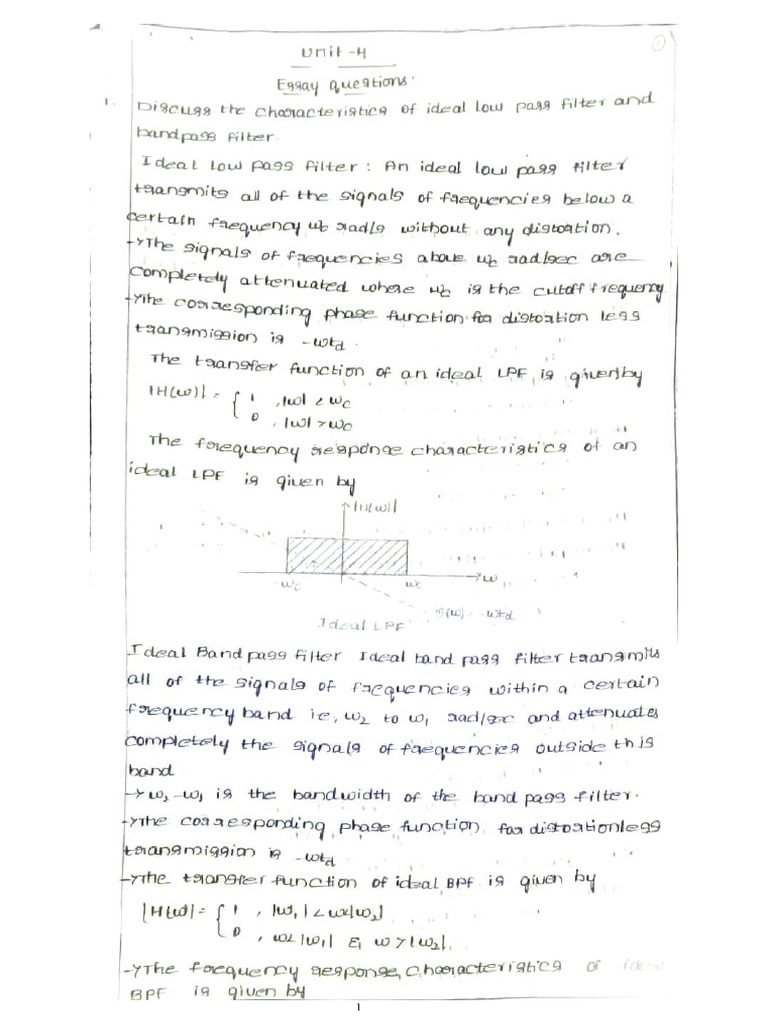 ①
Unit-4
Essay questions.
1.
Discuss the characteristics of ideal low pass filter and
bandpass filter.
Ideal Low Pass Filter: An ideal low pass filter
transmits all of the signals of frequencies below a
certain frequency wc rad/s without any distortion.
→The signals of frequencies above wc rad/sec are
completely attenuated where wc is the cutoff frequency
→The corresponding phase function for distortion less
transmission is -wtd.
The transfer function of an ideal LPF is given by
|H(w)| = { 1 , |w| < wc
0 , |w| > wc
The frequency response characteristics of an
ideal LPF is given by
|H(w)|
-wc wc → w
θ(w) = -wtd
Ideal LPF
Ideal Band pass filter Ideal band pass filter transmits
all of the signals of frequencies within a certain
frequency band ie, w2 to w1 rad/sec and attenuates
completely the signals of frequencies outside this
band
→ w2-w1 is the bandwidth of the band pass filter.
→The corresponding phase function for distortionless
transmission is -wtd
→The transfer function of ideal BPF is given by
|H(w)| = { 1 , |w1| < w < |w2|
0 , w < |w1| & w > |w2|.
→The frequency response characteristics of ideal
BPF is given by
1